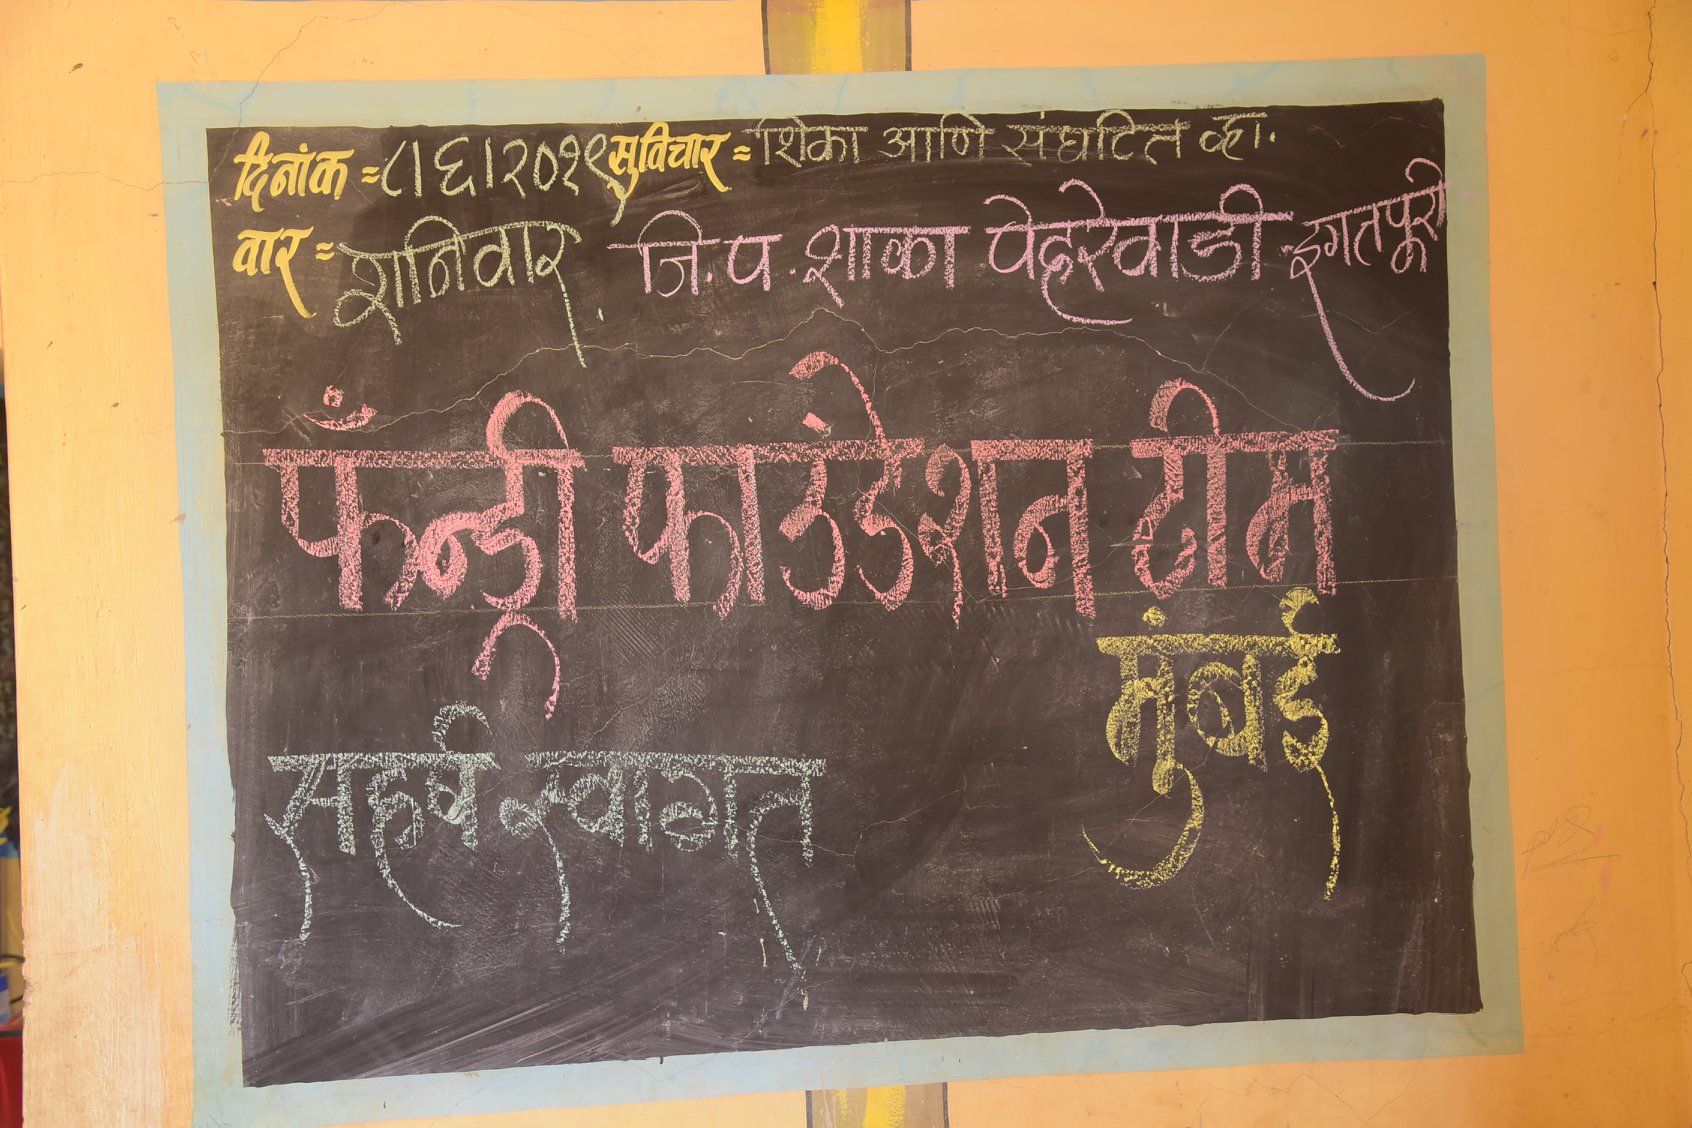 दिनांक = ८।६।२०१९ सुविचार = शिका आणि संघटित व्हा.
वार = शनिवार. जि.प. शाळा पेहरेवाडी इगतपूरी
फँन्ड्री फाउंडेशन टीम
मुंबई
सहर्ष स्वागत